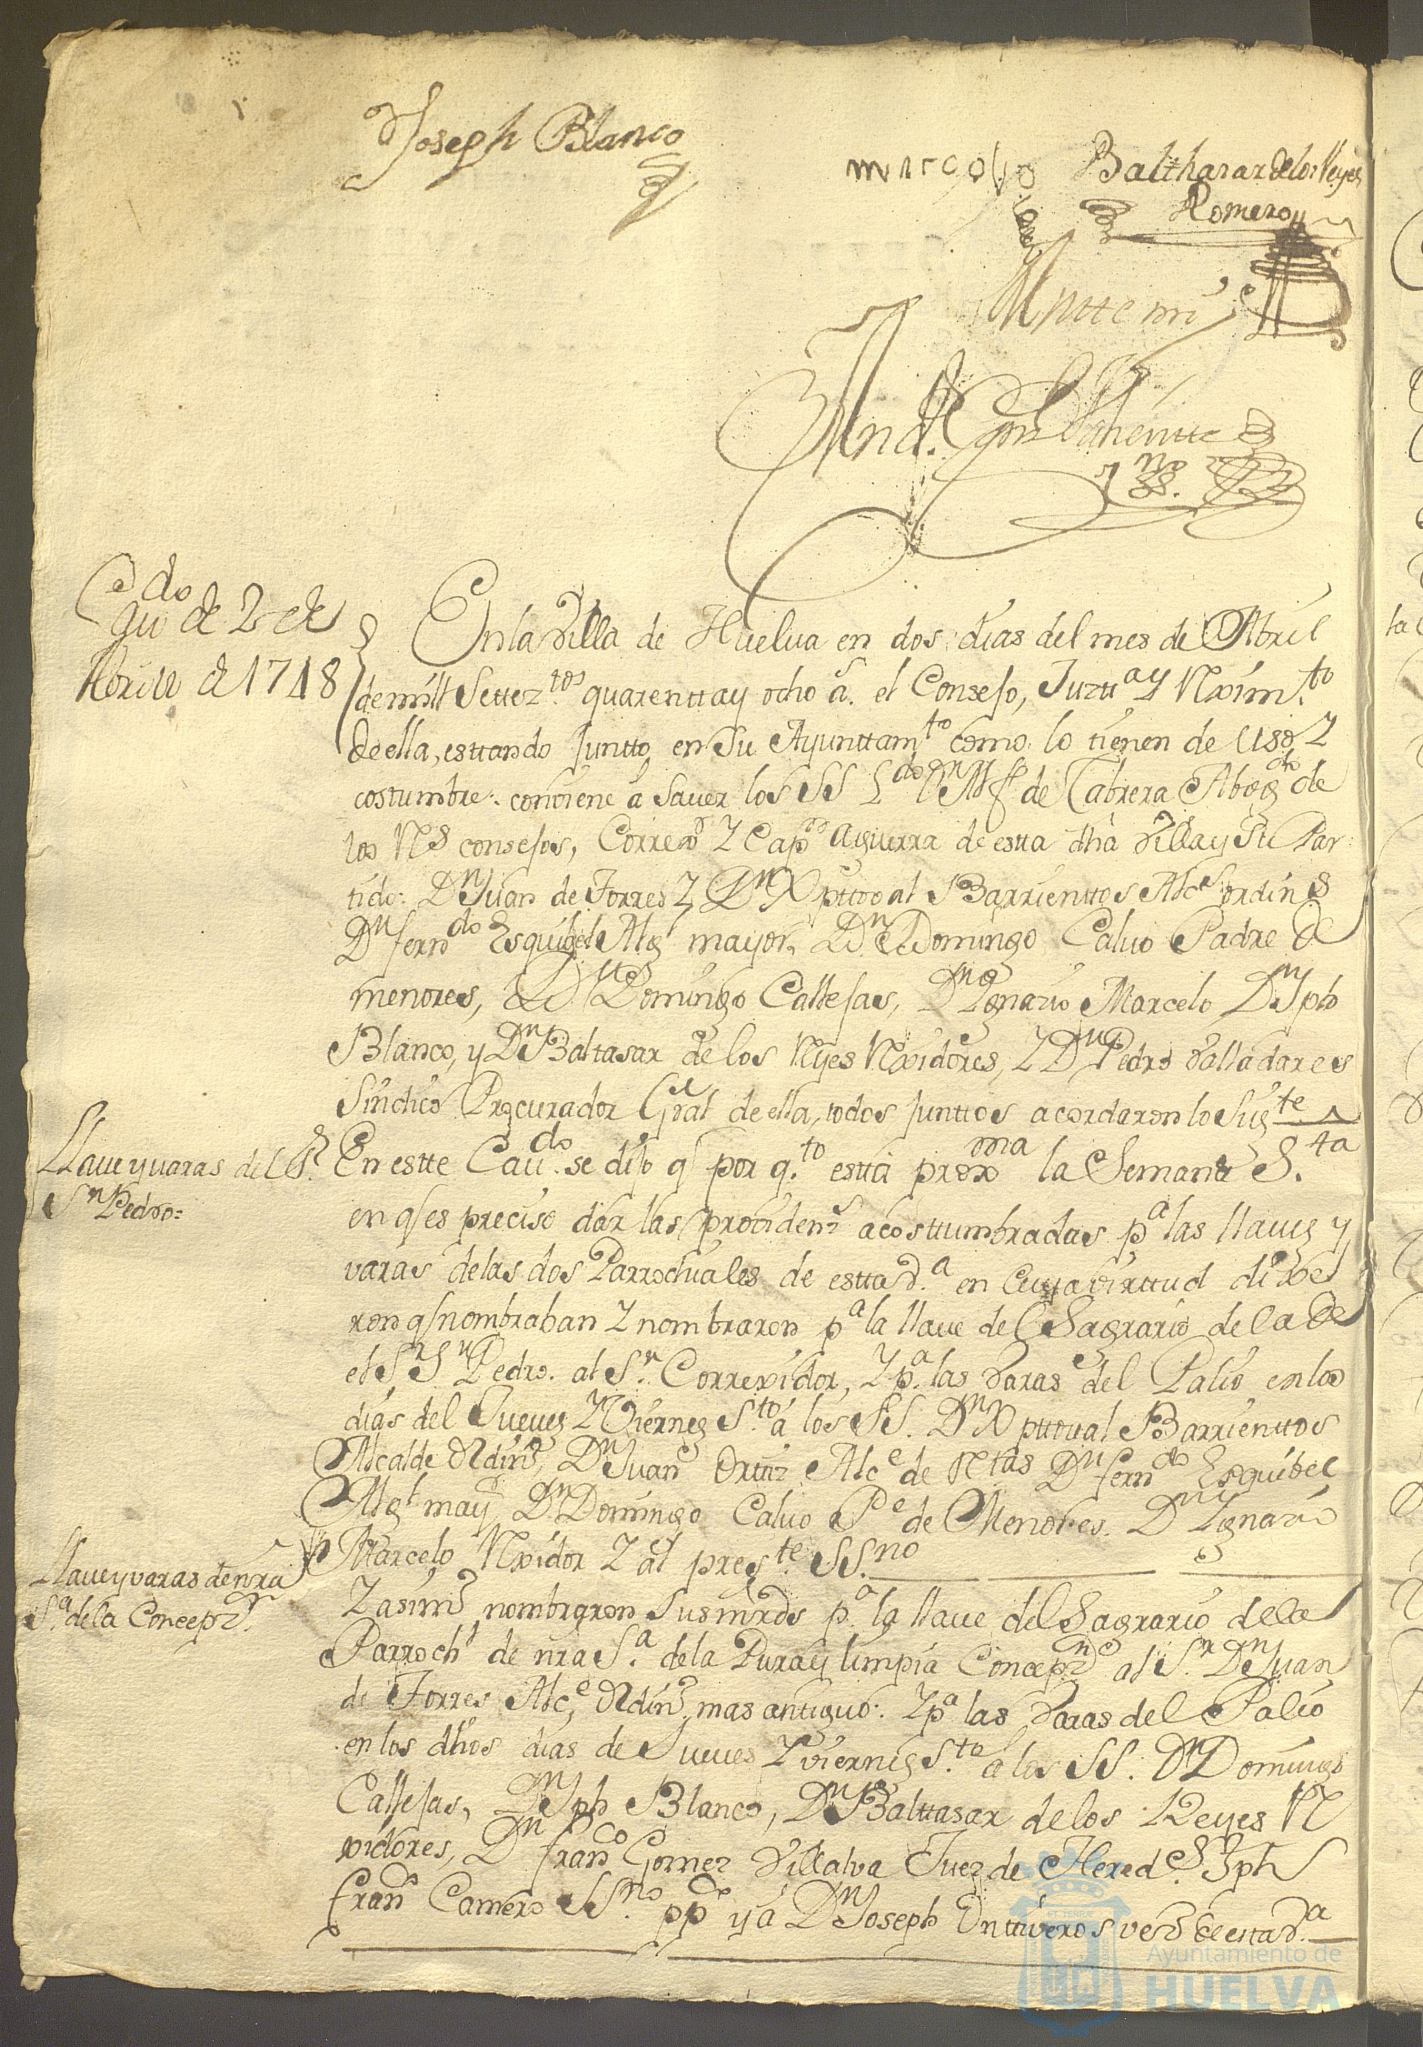 Joseph Blanco
Balthasar de los Reyes
Romero
Antte mi
And.
Cavdo
de 2 de
Abrill de 1748
En la Villa de Huelva en dos dias del mes de Abril
de mill Settez.tos quarentta y ocho a.s el Consejo, Juztt.a y Rxim.to
de ella, esttando juntto en Su Ayunttam.to como lo tienen de Uso y
costumbre: conviene á Saver los SS L.do D.n de Cabrera Abog.do de
los R.s consejos, Correx.or y Cap.n aguerra de estta dha Villa y Su Par
tido: D.n Juan de Torres y D.n Xpttoval Barrienttos Alc.es ordin.s
D.n fern.do Esquibel Alg.l mayor, D.n Domingo Calvo Padre de
menores, D.n Domingo Callejas, D.n Ignacio Marcelo D.n Jph
Blanco, y D.n Baltasar de los Reyes Rxidores, y D.n Pedro Valladares
Sindico Procurador Gral de ella, todos junttos acordaron lo Sig.te
Llave y varas del S.r
S.n Pedro=
En estte Cav.do se dijo q por q.to estta proxma la Semana S.ta
en q es preciso dar las providen.s acosttumbradas p.a las llaves y
varas de las dos Parrochiales de estta V.a en Cuya virttud dixe
ron q nombraban y nombraron p.a la llave del Sagrario de la de
el S.r S.n Pedro. al S.r Correxidor, y p.a las Varas del Palio en los
dias del Jueves y Viernes S.to á los SS. D.n Xpttoval Barrienttos
Alcalde Ordin.o, D.n Juan Orttiz Alc.e de D.n fern.do Esquibel
Alg.l may.r D.n Domingo Calvo P.e de Menores. D.n Ignacio
Marcelo Rxidor y al pres.te SS.no
Llave y varas de nra
S.a de la Concepz.n
Y asim.o nombraron Sus mrds p.a la llave del Sagrario de la
Parroch.l de nra S.a de la Pura y limpia Concepz.n al S.r D.n Juan
de Torres Alc.e Ordin.o mas antiguo: y p.a las Varas del Palio
en los dhos dias de Jueves y viernes S.to a los SS. D.n Domingo
Callejas, D.n Jph Blanco, D.n Balttasar de los Reyes R
xidores, D.n Fran.co Gomez Villalva Juez de Hered.s Jph
fran.co Camero SS.no pp.co y á D.n Joseph Unttiveros vez.o de esta V.a
Ayuntamiento de
HUELVA